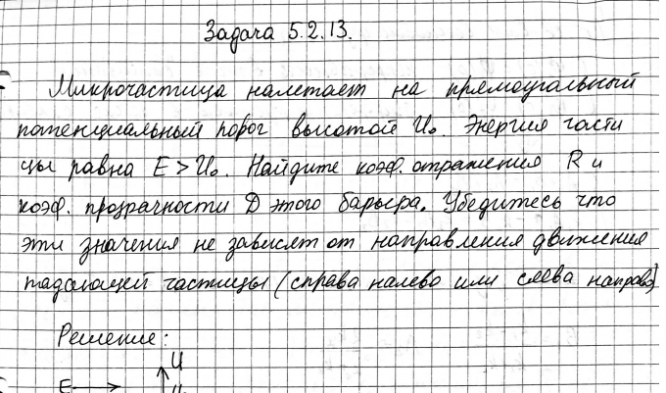 Задача 5.2.13.
Микрочастица налетает на прямоугольный
потенциальный порог высотой U₀. Энергия части
цы равна E > U₀. Найдите коэф. отражения R и
коэф. прозрачности D этого барьера. Убедитесь что
эти значения не зависят от направления движения
падающей частицы (справа налево или слева направо)
Решение:
U
E